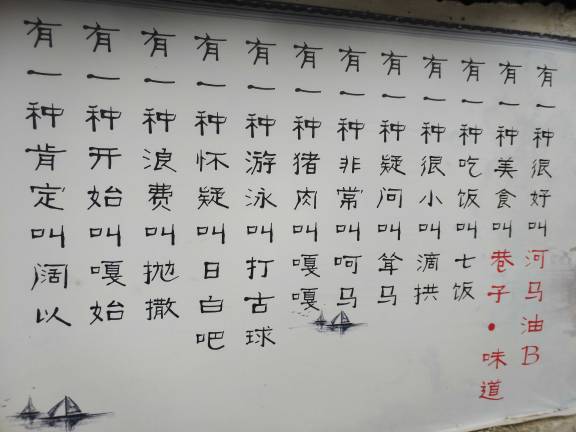 有一种很好叫河马油B
有一种美食叫巷子·味道
有一种吃饭叫七饭
有一种很小叫滴拱
有一种疑问叫耸马
有一种非常叫呵马
有一种猪肉叫嘎嘎
有一种游泳叫打古球
有一种怀疑叫日白吧
有一种浪费叫抛撒
有一种开始叫嘎始
有一种肯定叫阔以